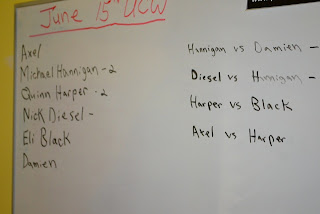 June 15th UCW
Axel
Michael Hannigan - 2
Quinn Harper - 2
Nick Diesel -
Eli Black
Damien
Hannigan vs Damien -
Diesel vs Hannigan -
Harper vs Black
Axel vs Harper